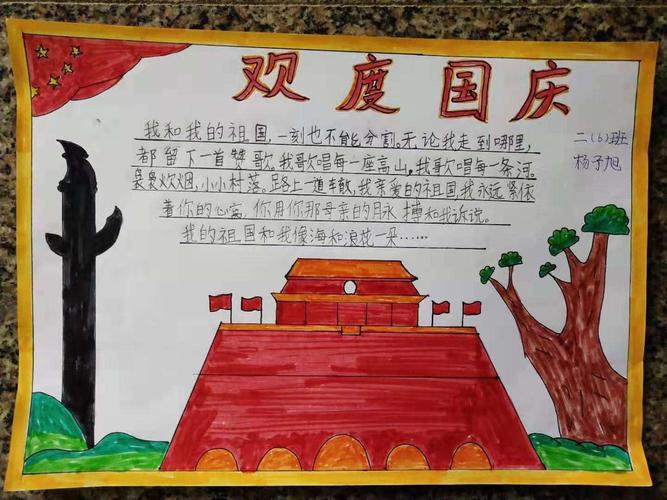 欢度国庆
二(6)班
杨子旭
我和我的祖国,一刻也不能分割。无论我走到哪里,
都留下一首赞歌。我歌唱每一座高山,我歌唱每一条河。
袅袅炊烟,小小村落。路上一道车散,我亲爱的祖国,我永远紧依
着你的心窝,你用你那母亲的月永 搏和我诉说。
我的祖国和我像海和浪花一朵……